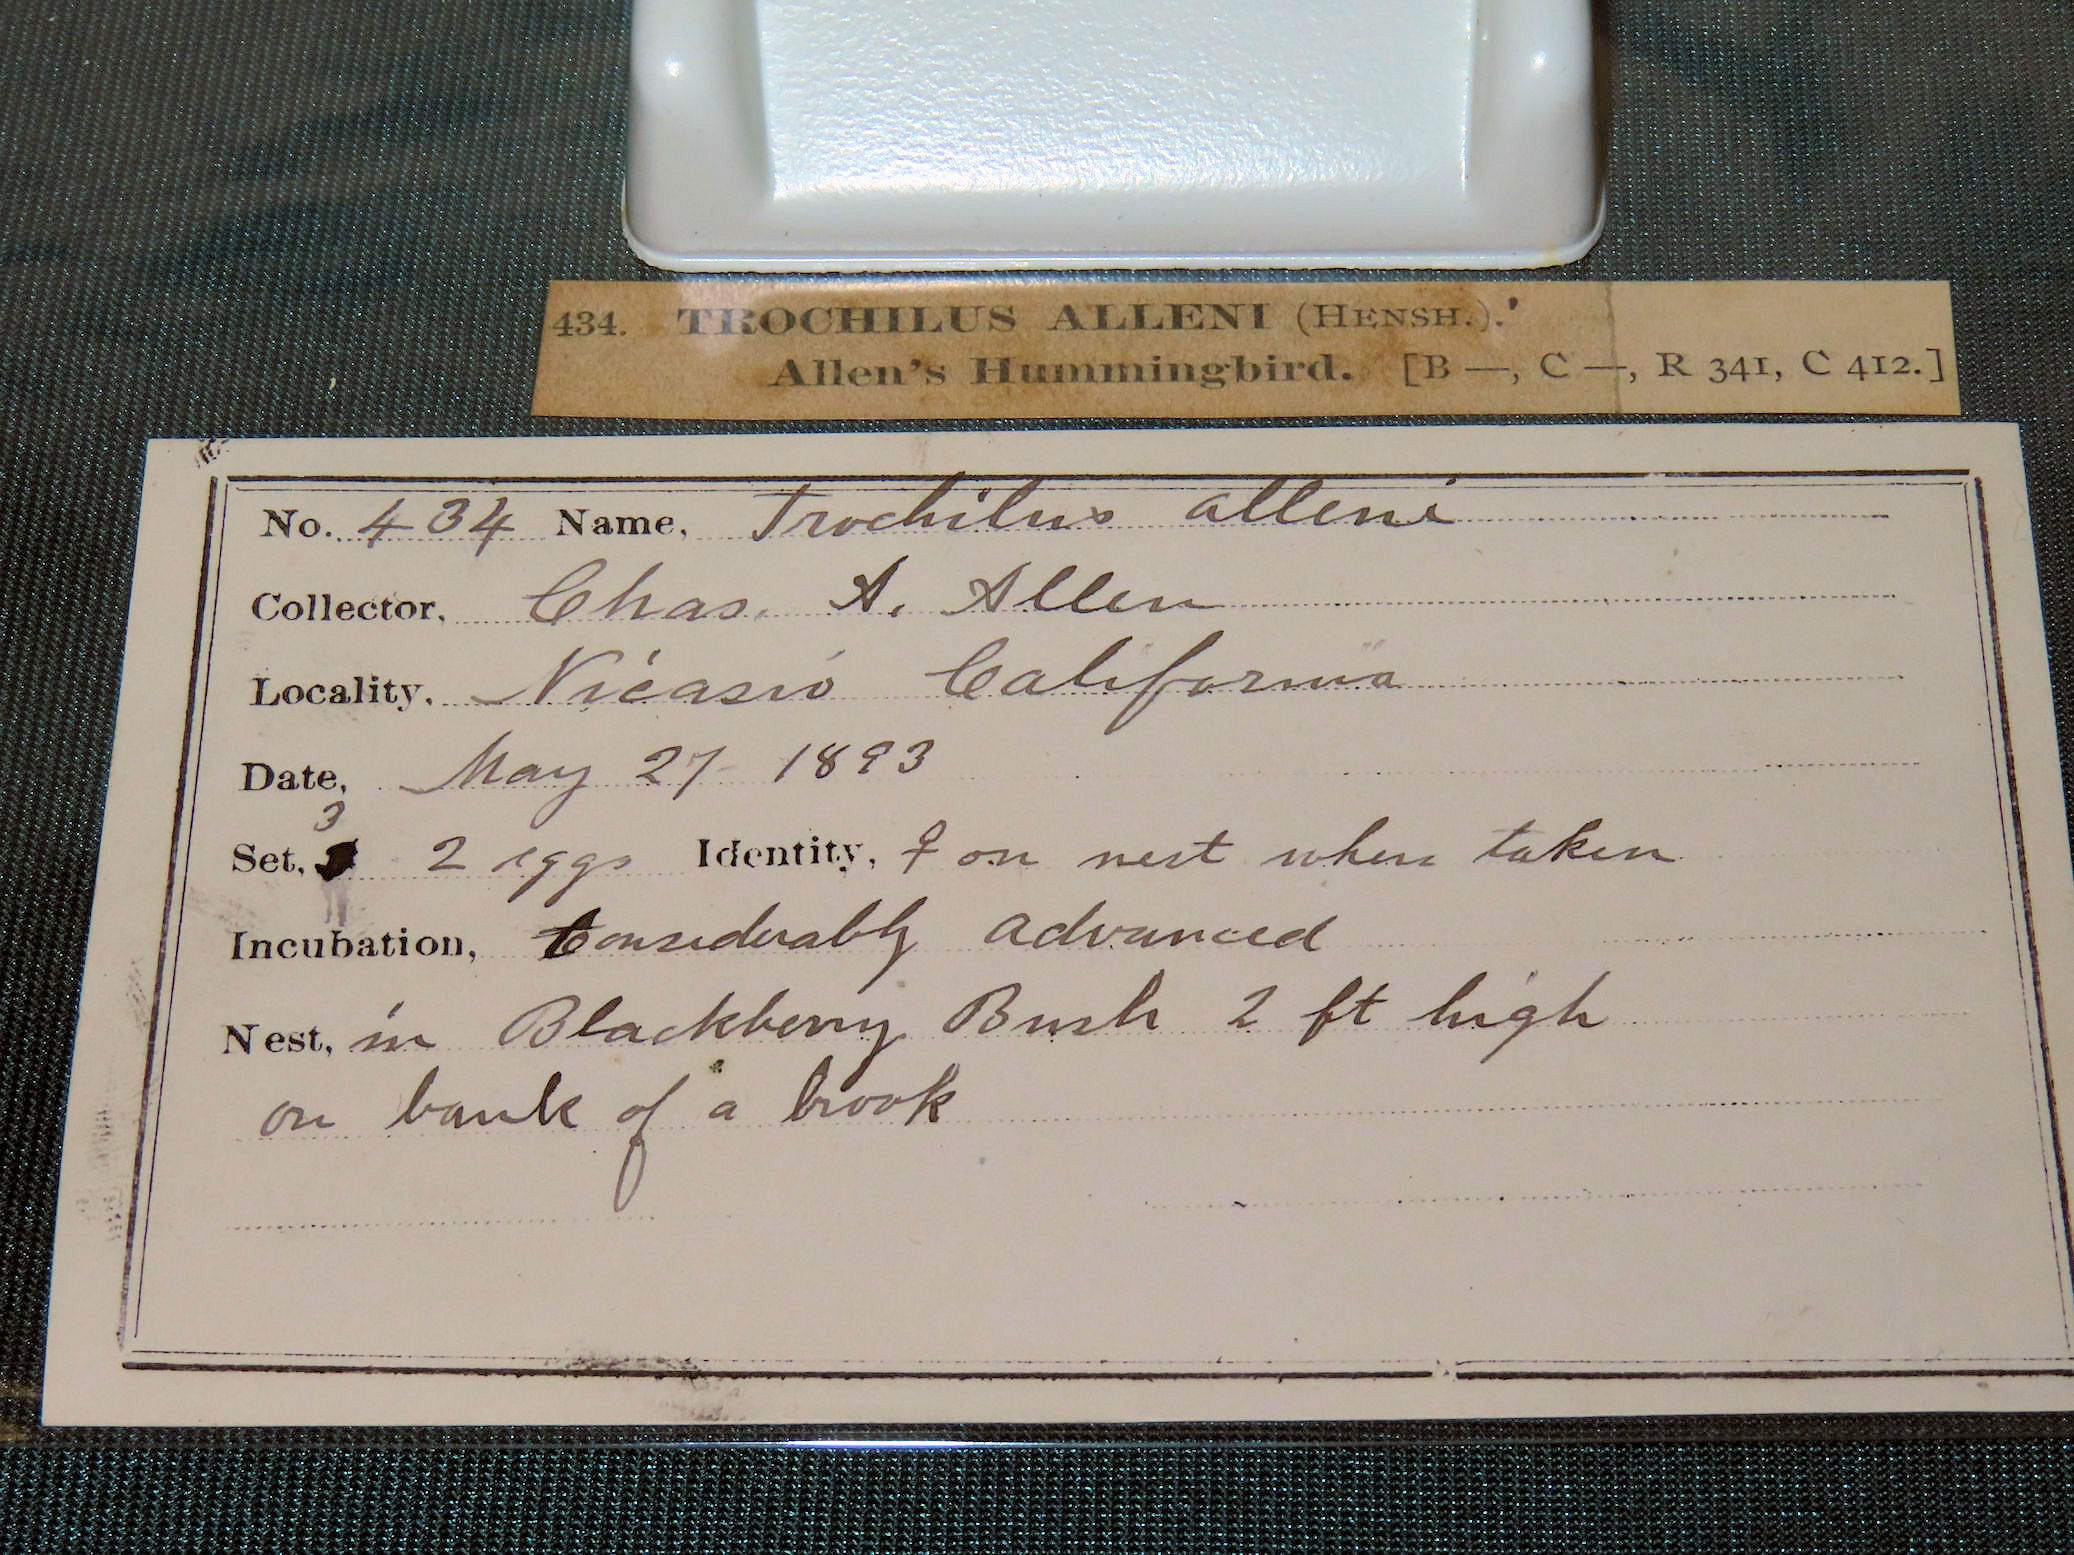 434. TROCHILUS ALLENI (HENSH.).
Allen's Hummingbird. [B —, C —, R 341, C 412.]
No. 434 Name, Trochilus alleni
Collector, Chas. A. Allen
Locality, Nicasio California
Date, May 27 1893
3
Set, 2 eggs Identity, ♀ on nest when taken
Incubation, Considerably advanced
Nest, in Blackberry Bush 2 ft high
on bank of a brook